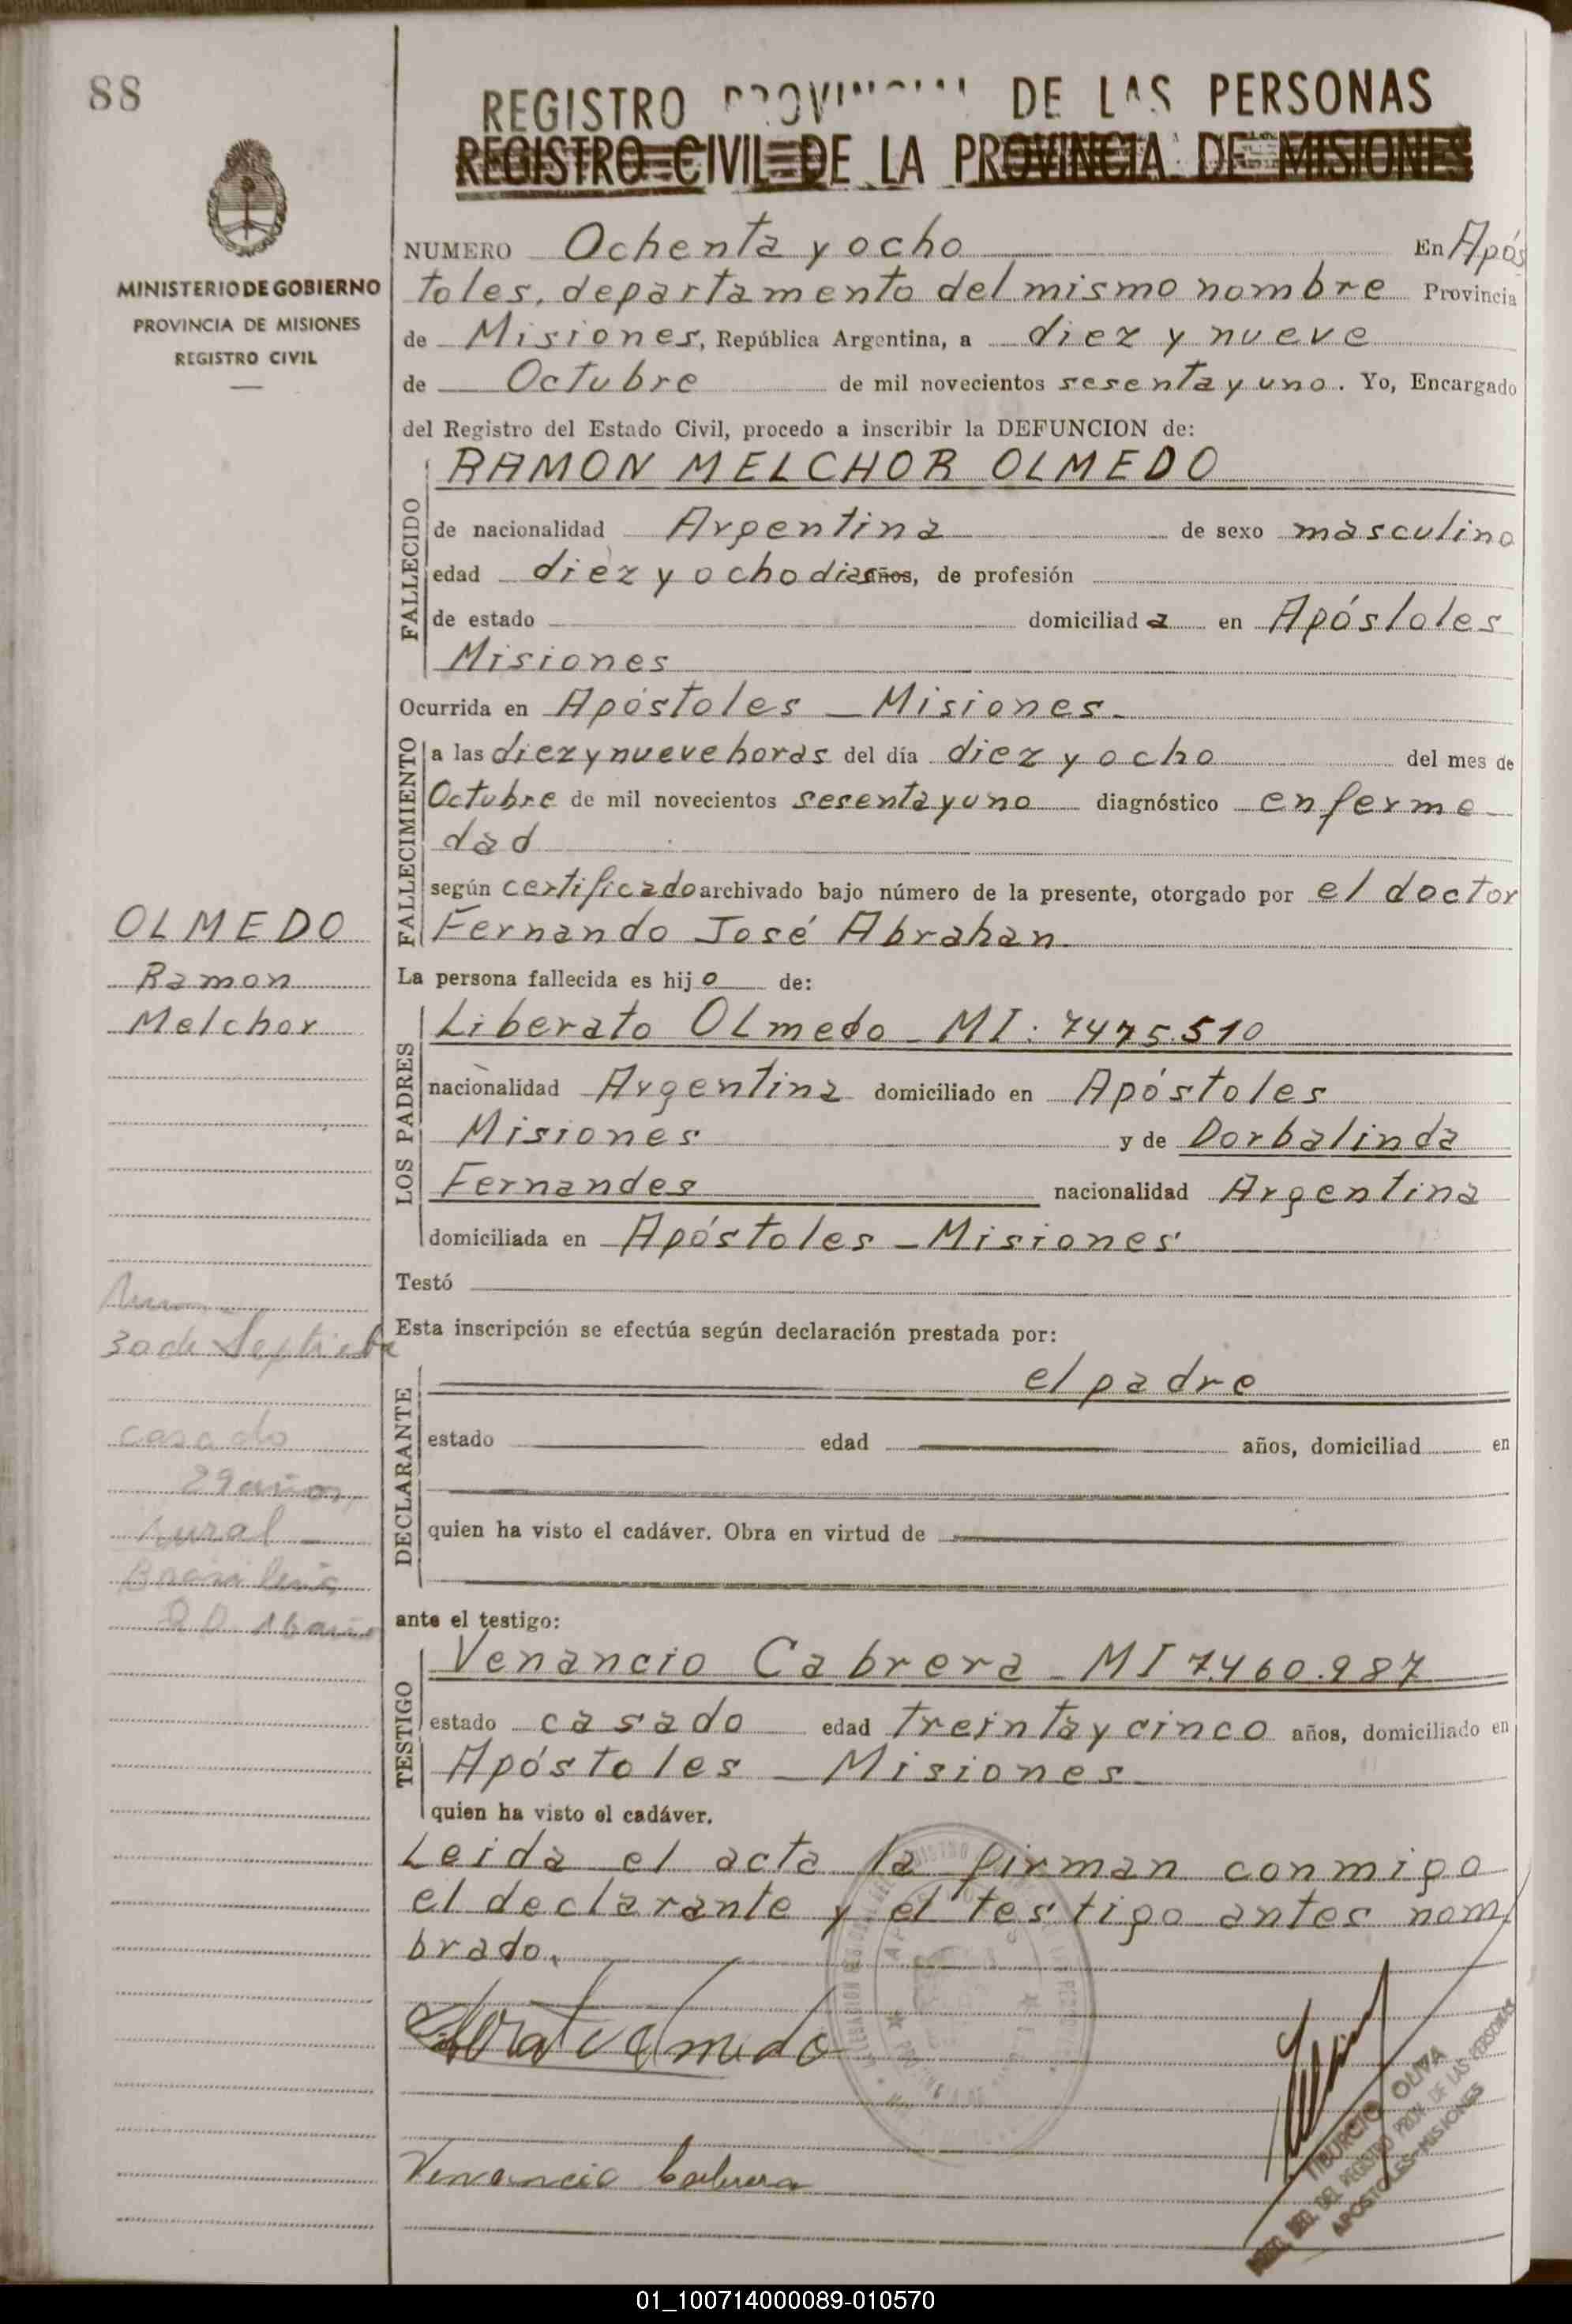 88
REGISTRO PROVINCIAL DE LAS PERSONAS
REGISTRO CIVIL DE LA PROVINCIA DE MISIONES
MINISTERIO DE GOBIERNO
PROVINCIA DE MISIONES
REGISTRO CIVIL
NUMERO Ochenta y ocho En Após
toles, departamento del mismo nombre Provincia
de Misiones, República Argentina, a diez y nueve
de Octubre de mil novecientos sesenta y uno. Yo, Encargado
del Registro del Estado Civil, procedo a inscribir la DEFUNCION de:
FALLECIDO
RAMON MELCHOR OLMEDO
de nacionalidad Argentina de sexo masculino
edad diez y ocho dias años, de profesión
de estado domiciliad a en Apóstoles
Misiones
Ocurrida en Apóstoles - Misiones
FALLECIMIENTO
a las diez y nueve horas del día diez y ocho del mes de
Octubre de mil novecientos sesenta y uno diagnóstico enferme
dad
según certificado archivado bajo número de la presente, otorgado por el doctor
Fernando José Abrahan
OLMEDO
Ramon
Melchor
La persona fallecida es hijo de:
LOS PADRES
Liberato Olmedo MI: 7475.510
nacionalidad Argentina domiciliado en Apóstoles
Misiones y de Dorbalinda
Fernandes nacionalidad Argentina
domiciliada en Apóstoles - Misiones
Testó
30 de Septiembre
casado
29 años
rural
Esta inscripción se efectúa según declaración prestada por:
DECLARANTE
el padre
estado edad años, domiciliad en
quien ha visto el cadáver. Obra en virtud de
ante el testigo:
TESTIGO
Venancio Cabrera - MI 7.460.987
estado casado edad treinta y cinco años, domiciliado en
Apóstoles - Misiones
quien ha visto el cadáver.
Leida el acta la firman conmigo
el declarante y el testigo antes nom
brado.
Venancio Cabrera
TIBURCIO OLIVA
DEL REGISTRO PROV. DE LAS PERSONAS
APOSTOLES-MISIONES
01_100714000089-010570